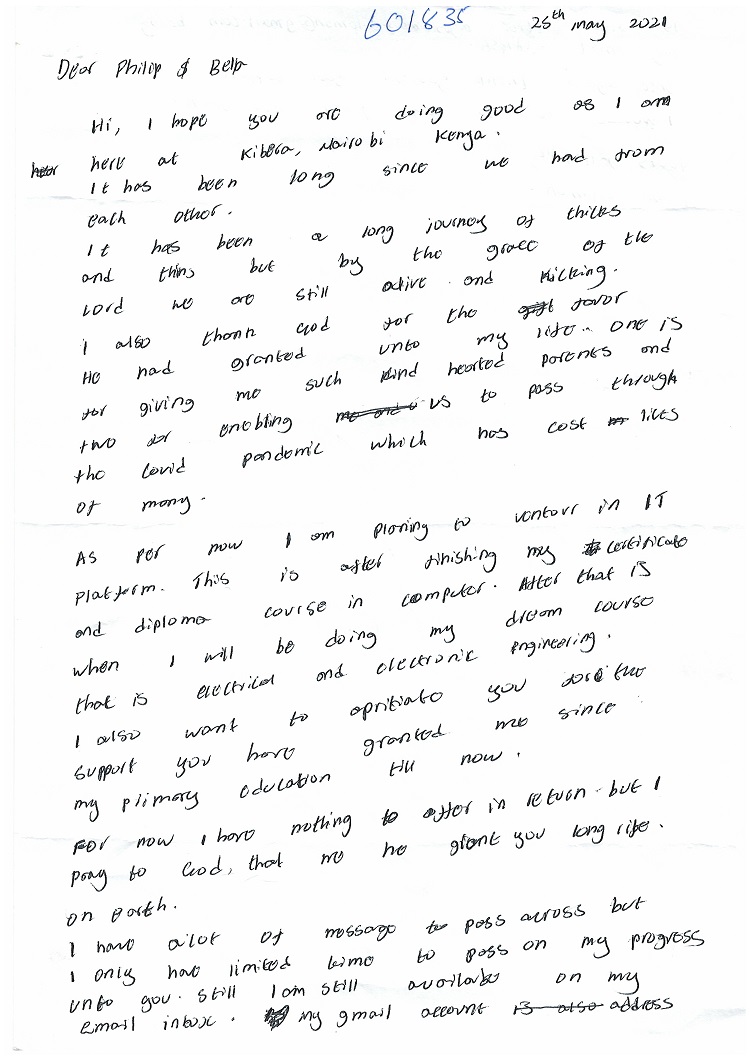 601835
25th may 2021
Dear Philip & Belp
Hi, I hope you are doing good as I am
here at Kibera, Nairobi Kenya.
It has been long since we had from
each other.
It has been a long journey of thicks
and thins but by the grace of the
Lord we are still active and kicking.
I also thank God for the favor
He had granted unto my life. One is
for giving me such kind hearted parents and
two for enabling us to pass through
the Covid pandemic which has cost lives
of many.
As per now I am planing to ventour in IT
platform. This is after finishing my certificate
and diploma course in computer. After that is
when I will be doing my dream course
that is electrical and electronic engineering.
I also want to apritiate you for the
support you have granted me since
my plimary education till now.
For now I have nothing to offer in return but I
pray to God, that he grant you long life.
on earth.
I have alot of message to pass across but
I only have limited time to pass on my progress
unto you. still I am still available on my
Email inbox. my gmail account address